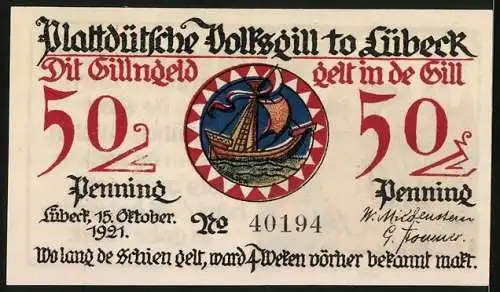 Plattdütsche Volksgill to Lübeck
Dit Gillngeld gelt in de Gill
50 50
Penning Penning
Lübeck, 15. Oktober. 1921.
No 40194
Wo lang de Schien gelt, ward 4 Weken vörher bekannt makt.